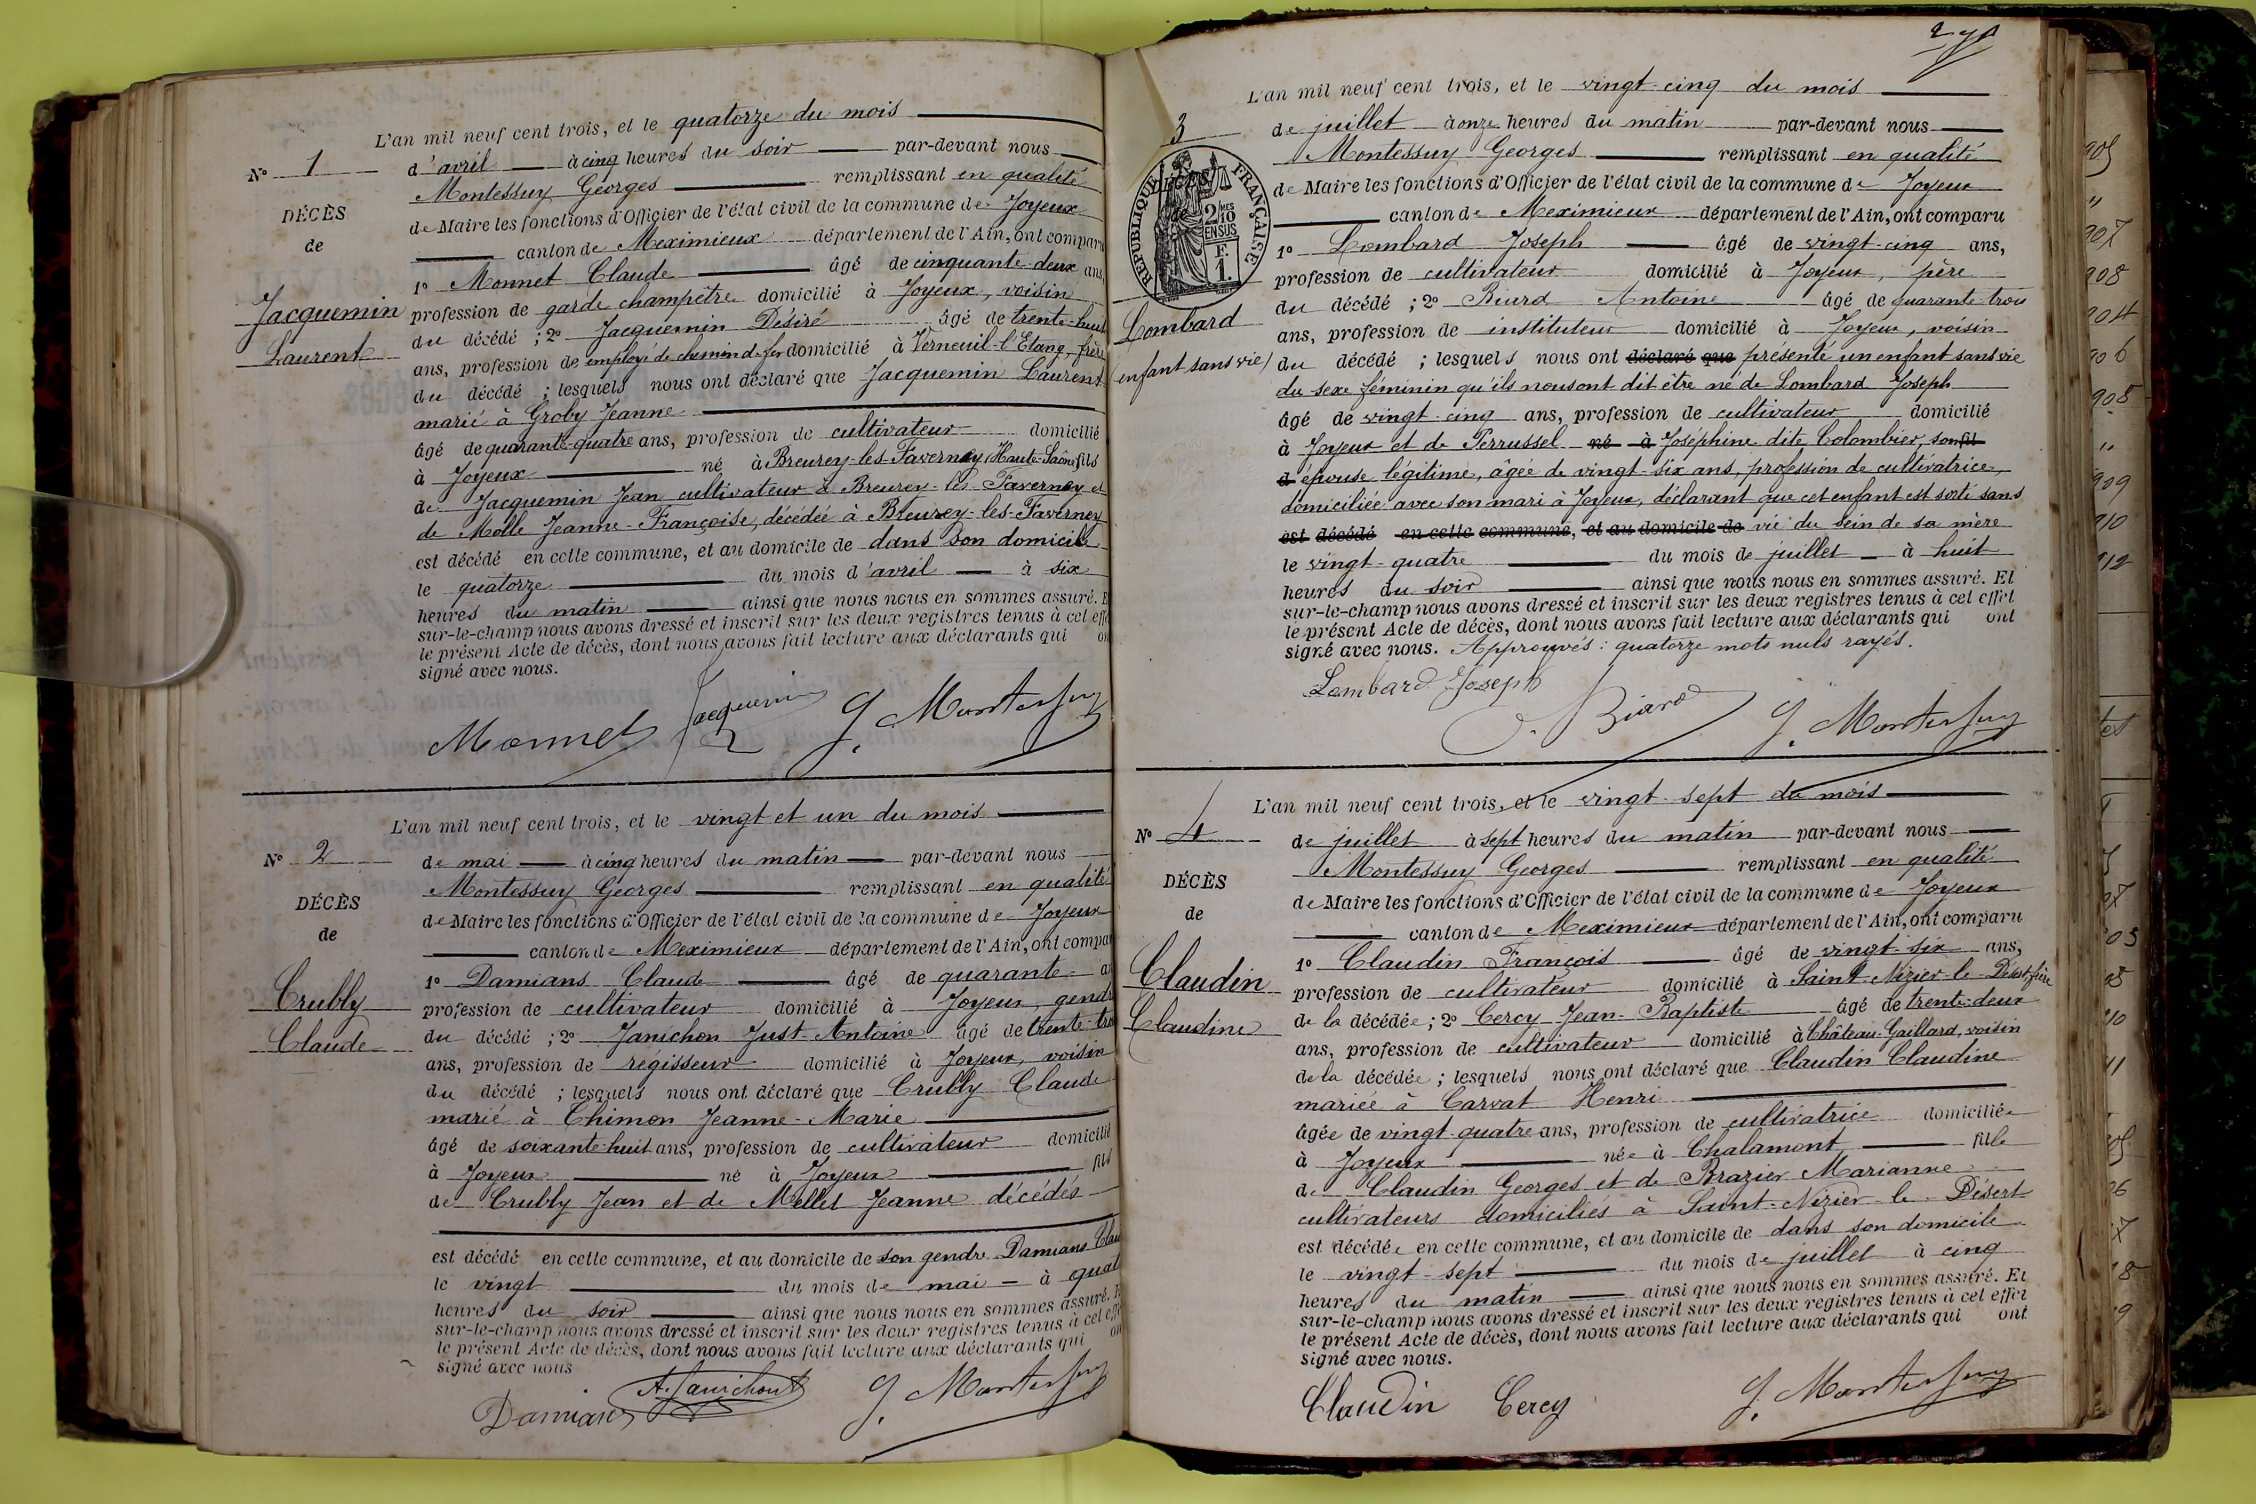 L'an mil neuf cent trois, et le quatorze du mois
N° 1
d'avril à cinq heures du soir par-devant nous
Montessuy Georges remplissant en qualité
DÉCÈS
de Maire les fonctions d'Officier de l'état civil de la commune de Joyeux
de
canton de Meximieux département de l'Ain, ont comparu
1° Monnet Claude âgé de cinquante-deux ans,
Jacquemin
profession de garde champêtre domicilié à Joyeux, voisin
Laurent
du décédé ; 2° Jacquemin Désiré âgé de trente-huit
ans, profession de employé de chemin de fer domicilié à Verneuil-l'Etang, frère
du décédé ; lesquels nous ont déclaré que Jacquemin Laurent
marié à Groby Jeanne
âgé de quarante-quatre ans, profession de cultivateur domicilié
à Joyeux né à Breurey-les-Faverney, Haute-Saône fils
de Jacquemin Jean cultivateur à Breurey-les-Faverney et
de Molle Jeanne-Françoise, décédée à Breurey-les-Faverney
est décédé en cette commune, et au domicile de dans son domicile
le quatorze du mois d'avril à six
heures du matin ainsi que nous nous en sommes assuré. E
sur-le-champ nous avons dressé et inscrit sur les deux registres tenus à cet effe
le présent Acte de décès, dont nous avons fait lecture aux déclarants qui on
signé avec nous.
Monnet Jacquemin G. Montessuy
L'an mil neuf cent trois, et le vingt et un du mois
N° 2
de mai à cinq heures du matin par-devant nous
Montessuy Georges remplissant en qualité
DÉCÈS
de Maire les fonctions d'Officier de l'état civil de la commune de Joyeux
de
canton de Meximieux département de l'Ain, ont compar
1° Damians Claude âgé de quarante an
Crubly
profession de cultivateur domicilié à Joyeux, gendre
Claude
du décédé ; 2° Janichon Just-Antoine âgé de trente-trois
ans, profession de régisseur domicilié à Joyeux, voisin
du décédé ; lesquels nous ont déclaré que Crubly Claude
marié à Chimon Jeanne-Marie
âgé de soixante-huit ans, profession de cultivateur domicilié
à Joyeux né à Joyeux fils
de Crubly Jean et de Mellet Jeanne décédés
est décédé en cette commune, et au domicile de son gendre Damians Clau
le vingt du mois de mai à quat
heures du soir ainsi que nous nous en sommes assuré. E
sur-le-champ nous avons dressé et inscrit sur les deux registres tenus à cet effe
le présent Acte de décès, dont nous avons fait lecture aux déclarants qui on
signé avec nous
Damians A. Janichon G. Montessuy
L'an mil neuf cent trois, et le vingt-cinq du mois
3
de juillet à onze heures du matin par-devant nous
Montessuy Georges remplissant en qualité
RÉPUBLIQUE FRANÇAISE
2/10 MES EN SUS
F. 1
de Maire les fonctions d'Officier de l'état civil de la commune de Joyeux
canton de Meximieux département de l'Ain, ont comparu
1° Lombard Joseph âgé de vingt-cinq ans,
profession de cultivateur domicilié à Joyeux, père
Lombard
du décédé ; 2° Biard Antoine âgé de quarante-trois
ans, profession de instituteur domicilié à Joyeux, voisin
(enfant sans vie)
du décédé ; lesquels nous ont déclaré que présenté un enfant sans vie
du sexe féminin qu'ils nous ont dit être né de Lombard Joseph
âgé de vingt-cinq ans, profession de cultivateur domicilié
à Joyeux et de Perrussel né à Joséphine dite Colombier, son fil
d épouse légitime, âgée de vingt-six ans, profession de cultivatrice,
domiciliée avec son mari à Joyeux, déclarant que cet enfant est sorti sans
est décédé en cette commune, et au domicile de vie du sein de sa mère
le vingt-quatre du mois de juillet à huit
heures du soir ainsi que nous nous en sommes assuré. Et
sur-le-champ nous avons dressé et inscrit sur les deux registres tenus à cet effet
le présent Acte de décès, dont nous avons fait lecture aux déclarants qui ont
signé avec nous. Approuvés : quatorze mots nuls rayés.
Lombard Joseph
Biard G. Montessuy
L'an mil neuf cent trois, et le vingt-sept du mois
N° 4
de juillet à sept heures du matin par-devant nous
Montessuy Georges remplissant en qualité
DÉCÈS
de Maire les fonctions d'Officier de l'état civil de la commune de Joyeux
de
canton de Meximieux département de l'Ain, ont comparu
1° Claudin François âgé de vingt-six ans,
Claudin
profession de cultivateur domicilié à Saint-Nizier-le-Désert, frère
Claudine
de la décédée ; 2° Cercy Jean-Baptiste âgé de trente-deux
ans, profession de cultivateur domicilié à Château-Gaillard, voisin
de la décédée ; lesquels nous ont déclaré que Claudin Claudine
mariée à Carvat Henri
âgée de vingt-quatre ans, profession de cultivatrice domiciliée
à Joyeux née à Chalamont fille
de Claudin Georges et de Brazier Marianne
cultivateurs domiciliés à Saint-Nizier-le-Désert
est décédée en cette commune, et au domicile de dans son domicile
le vingt-sept du mois de juillet à cinq
heures du matin ainsi que nous nous en sommes assuré. Et
sur-le-champ nous avons dressé et inscrit sur les deux registres tenus à cet effet
le présent Acte de décès, dont nous avons fait lecture aux déclarants qui ont
signé avec nous.
Claudin Cercy G. Montessuy